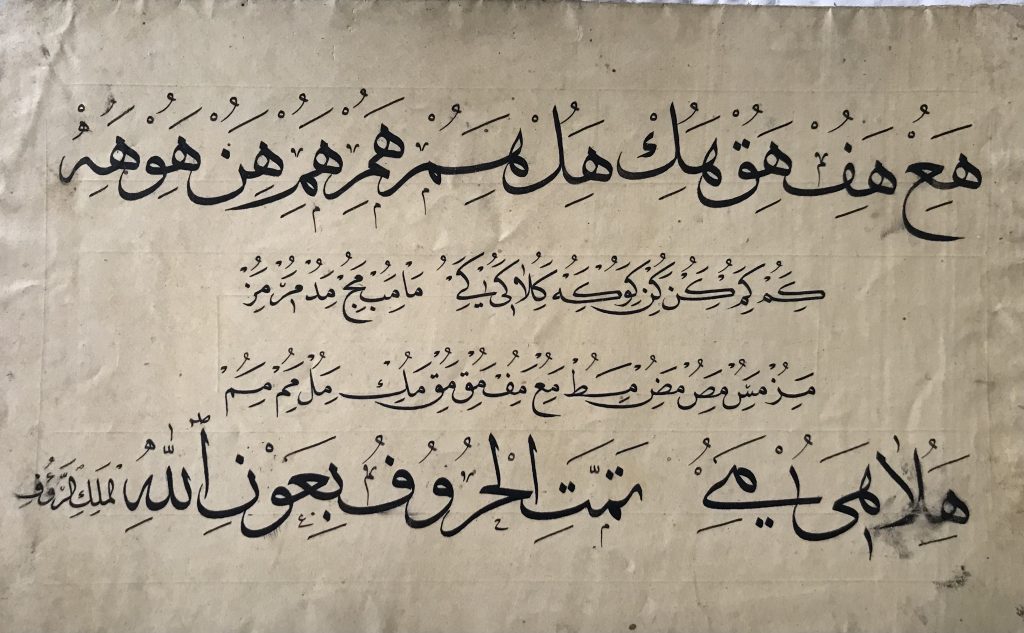 هع هف هق هك هل هم هم هم هن هو هه
كم كم كن كن كو كه كلا كى كے ما مب مج مد مر
مس مص مض مط مع مف مق مق مك مل مم مم
هلا هى تَمَّتِ الْحُرُوفُ بِعَوْنِ اللهِ الْمَلِكِ الرَّؤُفِ